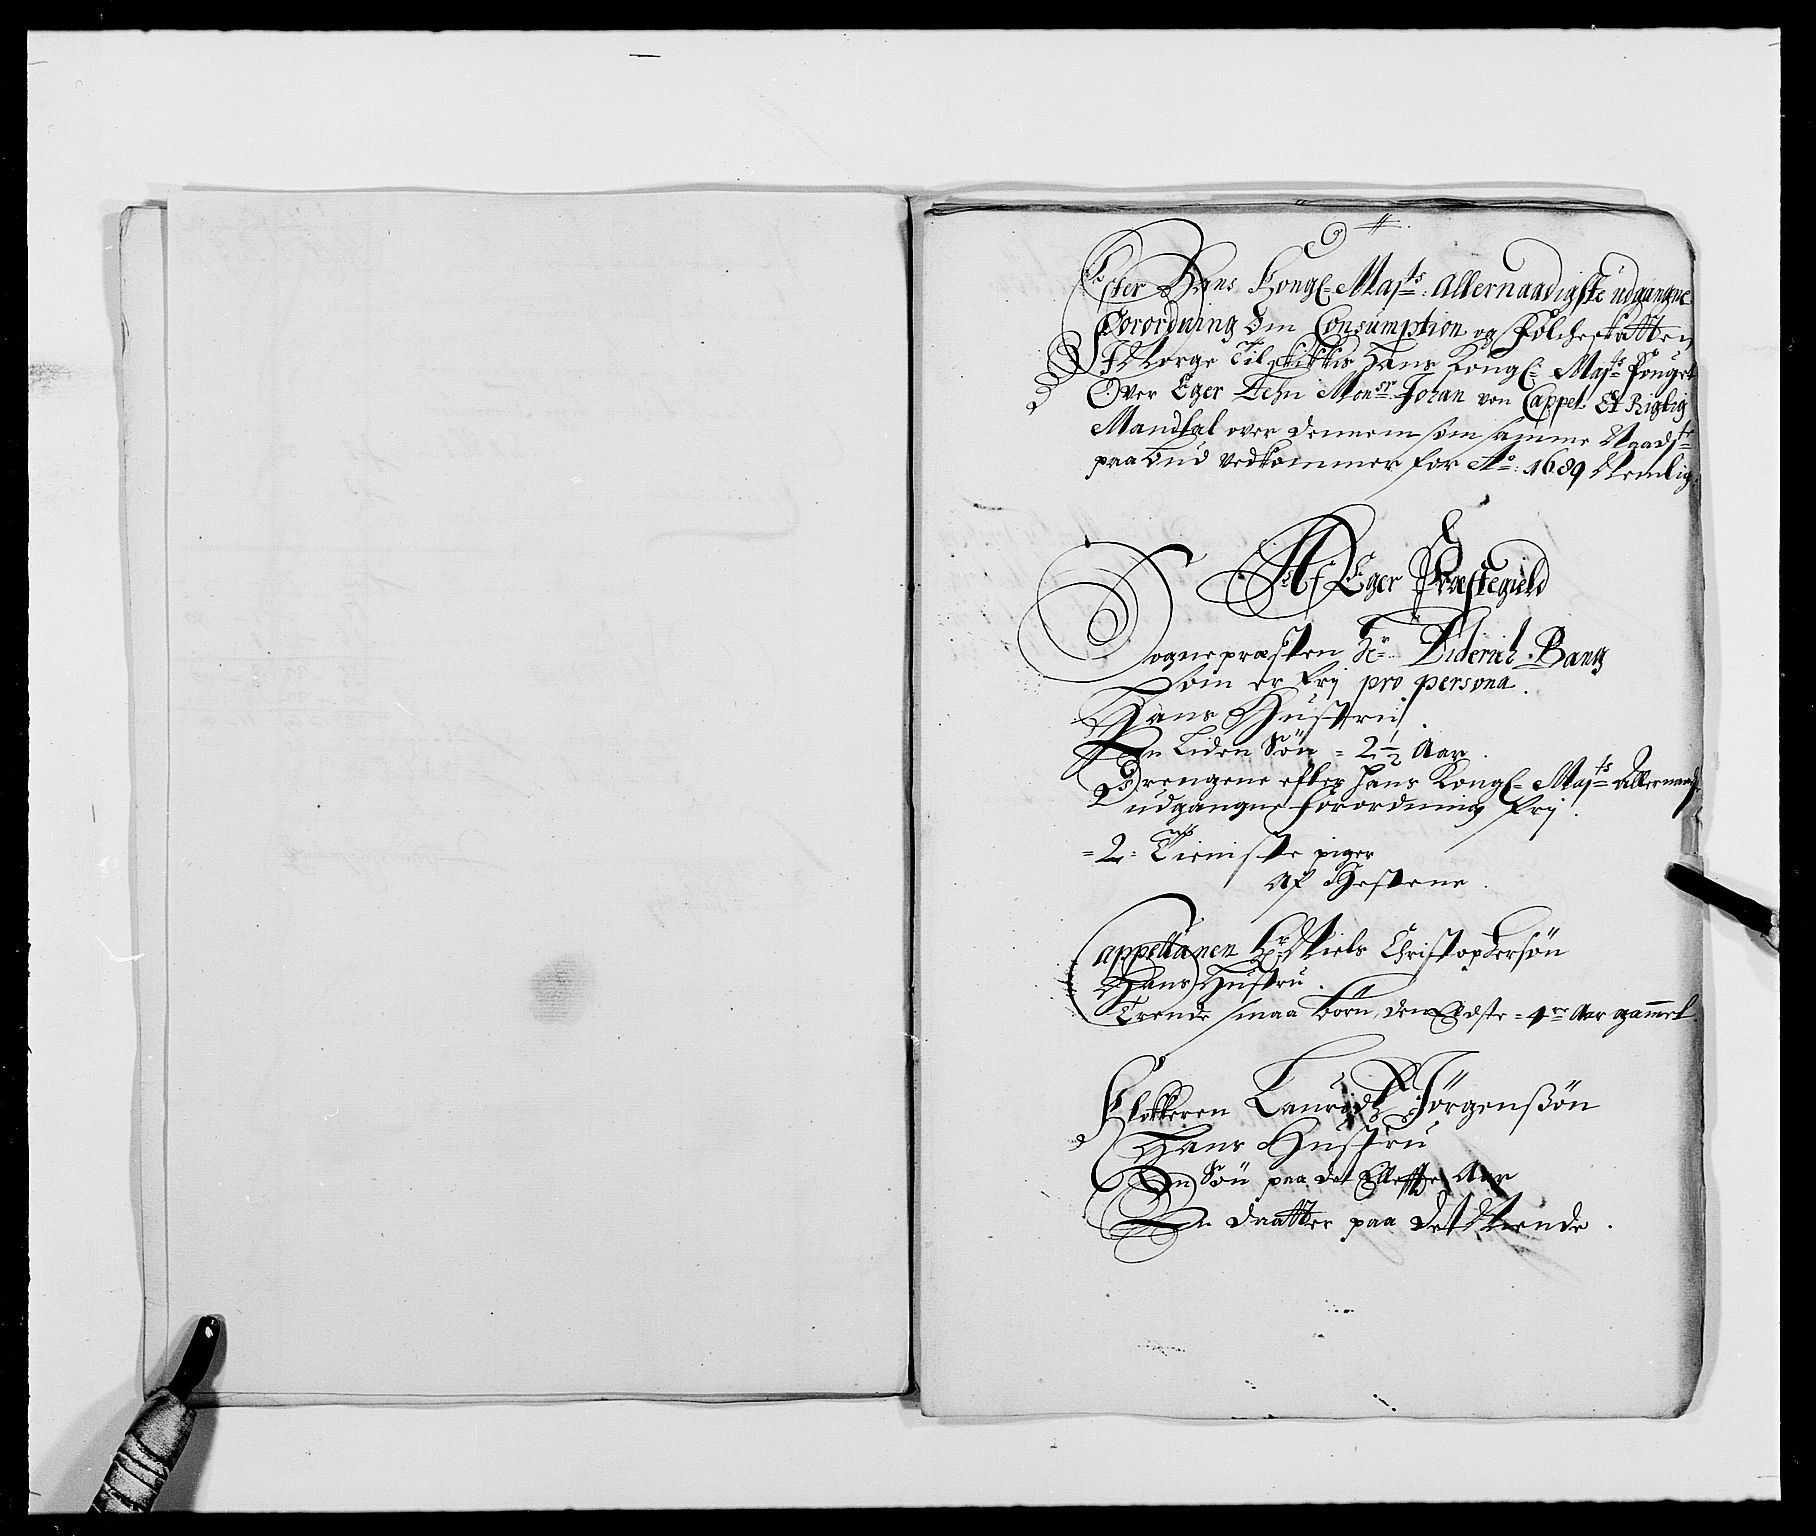 Efter Hans Kongl: Majts: Allernaadigste udgangne
Forordning Om Consumption og Folcheskatten
I Norge Tilskikkis Hans Kongl: Majts: Fouget
Over Eger Lehn Monsr: Johan von Cappel Et Rigtig
Mandtal over dennem som samme Naadste
paabud vedkommer for Ao: 1689 Nemlig:
Af Eger Præstegield
Sognepræsten Hr: Diderich Bang
som er frij pro persona.
Hans Hustru.
En Liden Søn = 2½ Aar.
Drengene efter Hans Kongl: Majts Allernaadste
udgangne forordning frij.
= 2: Tieniste piger
Af Hestene.
Cappellanen Hr: Niels Christophersøn
Hans Hustru.
Trende smaa børn, den Eldste = 4re Aar gammel.
Klokkeren Lauridtz Jørgenßøn
Hans Hustru
En Søn paa det Ellefte Aar
En daatter paa det Niende.